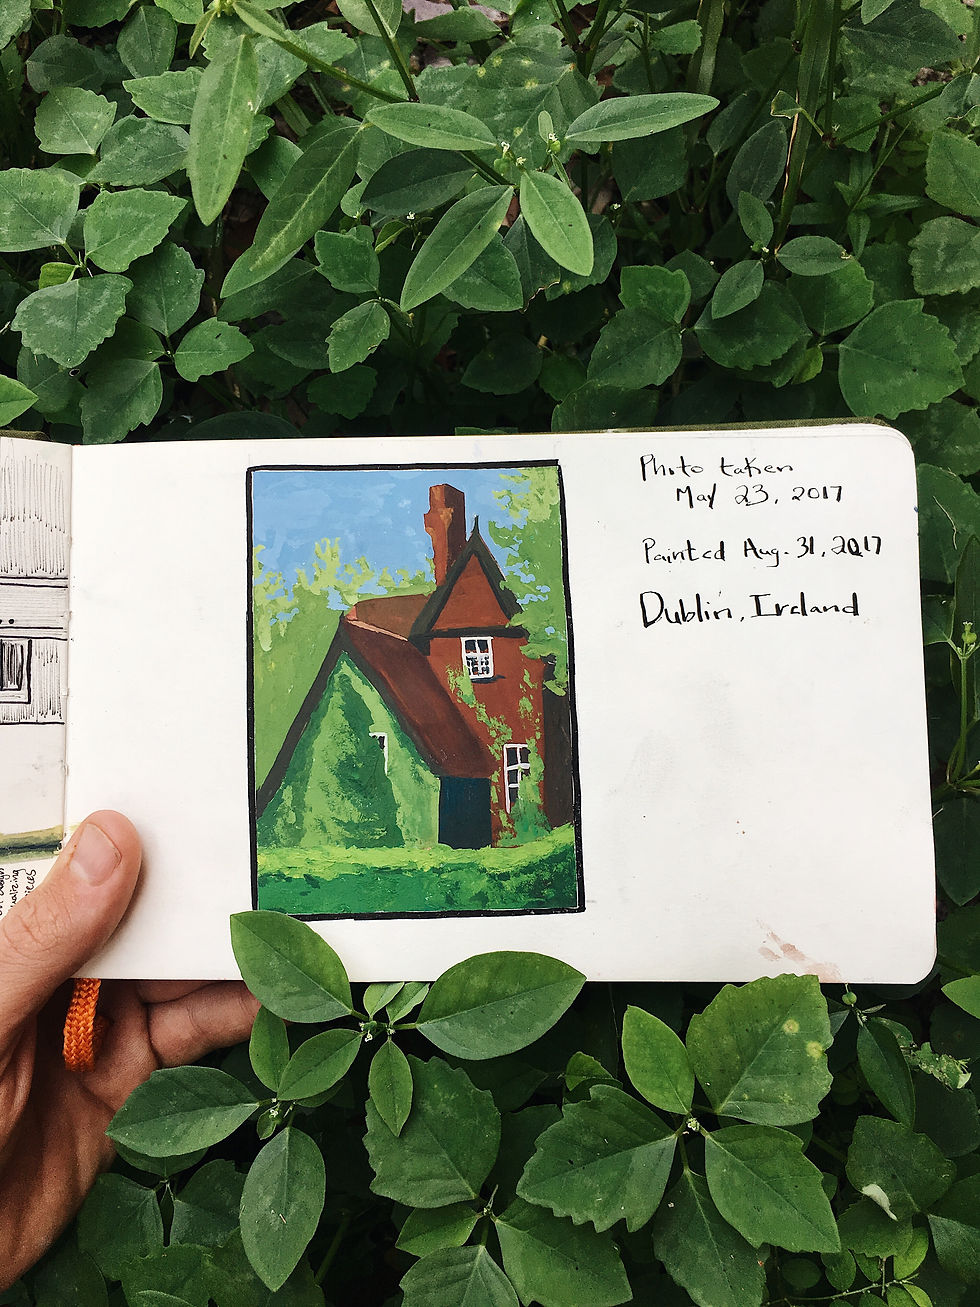 Photo taken
May 23, 2017
Painted Aug. 31, 2017
Dublin, Ireland